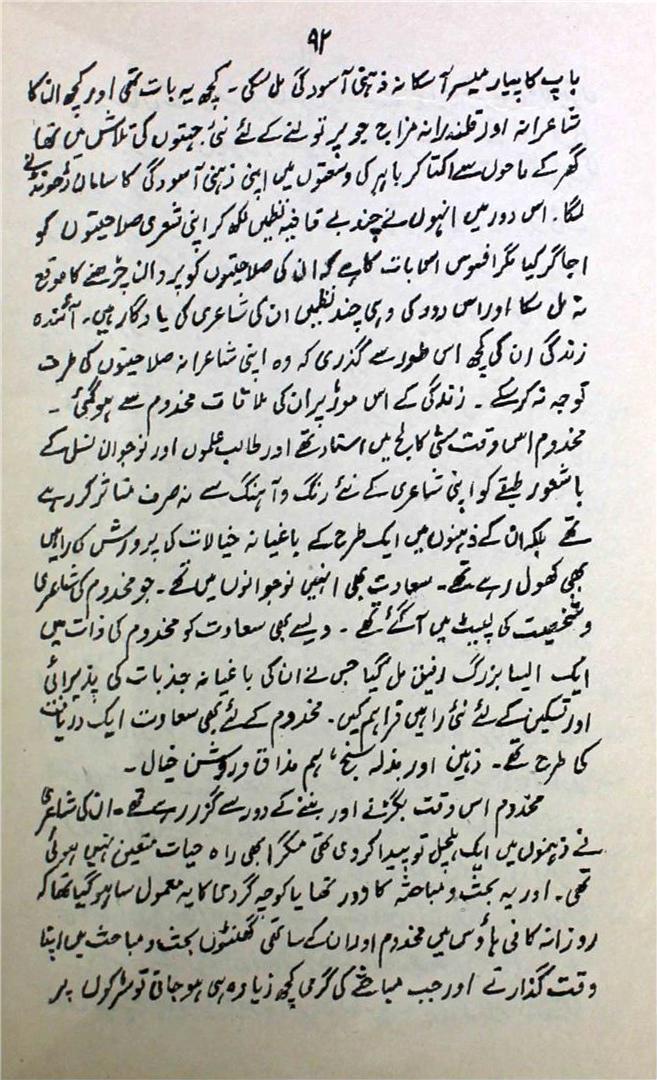 ۹۲
باپ کا پیار میسر آسکا نہ ذہنی آسودگی مل سکی ۔ کچھ یہ بات تھی اور کچھ ان کا
شاعرانہ اور قلندرانہ مزاج جو پر تولنے کے لئے نئی جہتوں کی تلاش میں تھا
گھر کے ماحول سے اکتا کر باہر کی وسعتوں میں اپنی ذہنی آسودگی کا سامان ڈھونڈنے
لگا ۔ اس دور میں انہوں نے چند بے قافیہ نظمیں لکھ کر اپنی شعری صلاحیتوں کو
اجاگر کیا مگر افسوس اس بات کا ہے کہ ان کی صلاحیتوں کو پروان چڑھنے کا موقع
نہ مل سکا اور اس دور کی وہی چند نظمیں ان کی شاعری کی یادگار ہیں ۔ آئندہ
زندگی ان کی کچھ اس طور سے گذری کہ وہ اپنی شاعرانہ صلاحیتوں کی طرف
توجہ نہ کر سکے ۔ زندگی کے اس موڑ پر ان کی ملاقات مخدوم سے ہوگئی ۔
مخدوم اس وقت سٹی کالج میں استاد تھے اور طالب علموں اور نوجوان نسل کے
باشعور طبقے کو اپنی شاعری کے نئے رنگ و آہنگ سے نہ صرف متاثر کر رہے
تھے بلکہ ان کے ذہنوں میں ایک طرح کے باغیانہ خیالات کی پرورش کی راہیں
بھی کھول رہے تھے ۔ سعادت بھی انہیں نوجوانوں میں تھے ۔ جو مخدوم کی شاعری
و شخصیت کی لپیٹ میں آگئے تھے ۔ ویسے بھی سعادت کو مخدوم کی ذات میں
ایک ایسا بزرگ رفیق مل گیا جس نے ان کی باغیانہ جذبات کی پذیرائی
اور تسکین کے لئے نئی راہیں فراہم کیں ۔ مخدوم کے لئے بھی سعادت ایک دریافت
کی طرح تھے ۔ ذہین اور بذلہ سنج ، ہم مذاق و روشن خیال ۔
مخدوم اس وقت بگڑنے اور بننے کے دور سے گزر رہے تھے ۔ ان کی شاعری
نے ذہنوں میں ایک ہلچل تو پیدا کر دی تھی مگر ابھی راہ حیات متعین نہیں ہوئی
تھی ۔ اور یہ بحث و مباحثہ کا دور تھا یا کوچہ گردی کا یہ معمول سا ہوگیا تھا کہ
روزانہ کافی ہاؤس میں مخدوم اور ان کے ساتھی گھنٹوں بحث و مباحث میں اپنا
وقت گذارتے اور جب مباحثے کی گرمی کچھ زیادہ ہی ہو جاتی تو سڑکوں پر